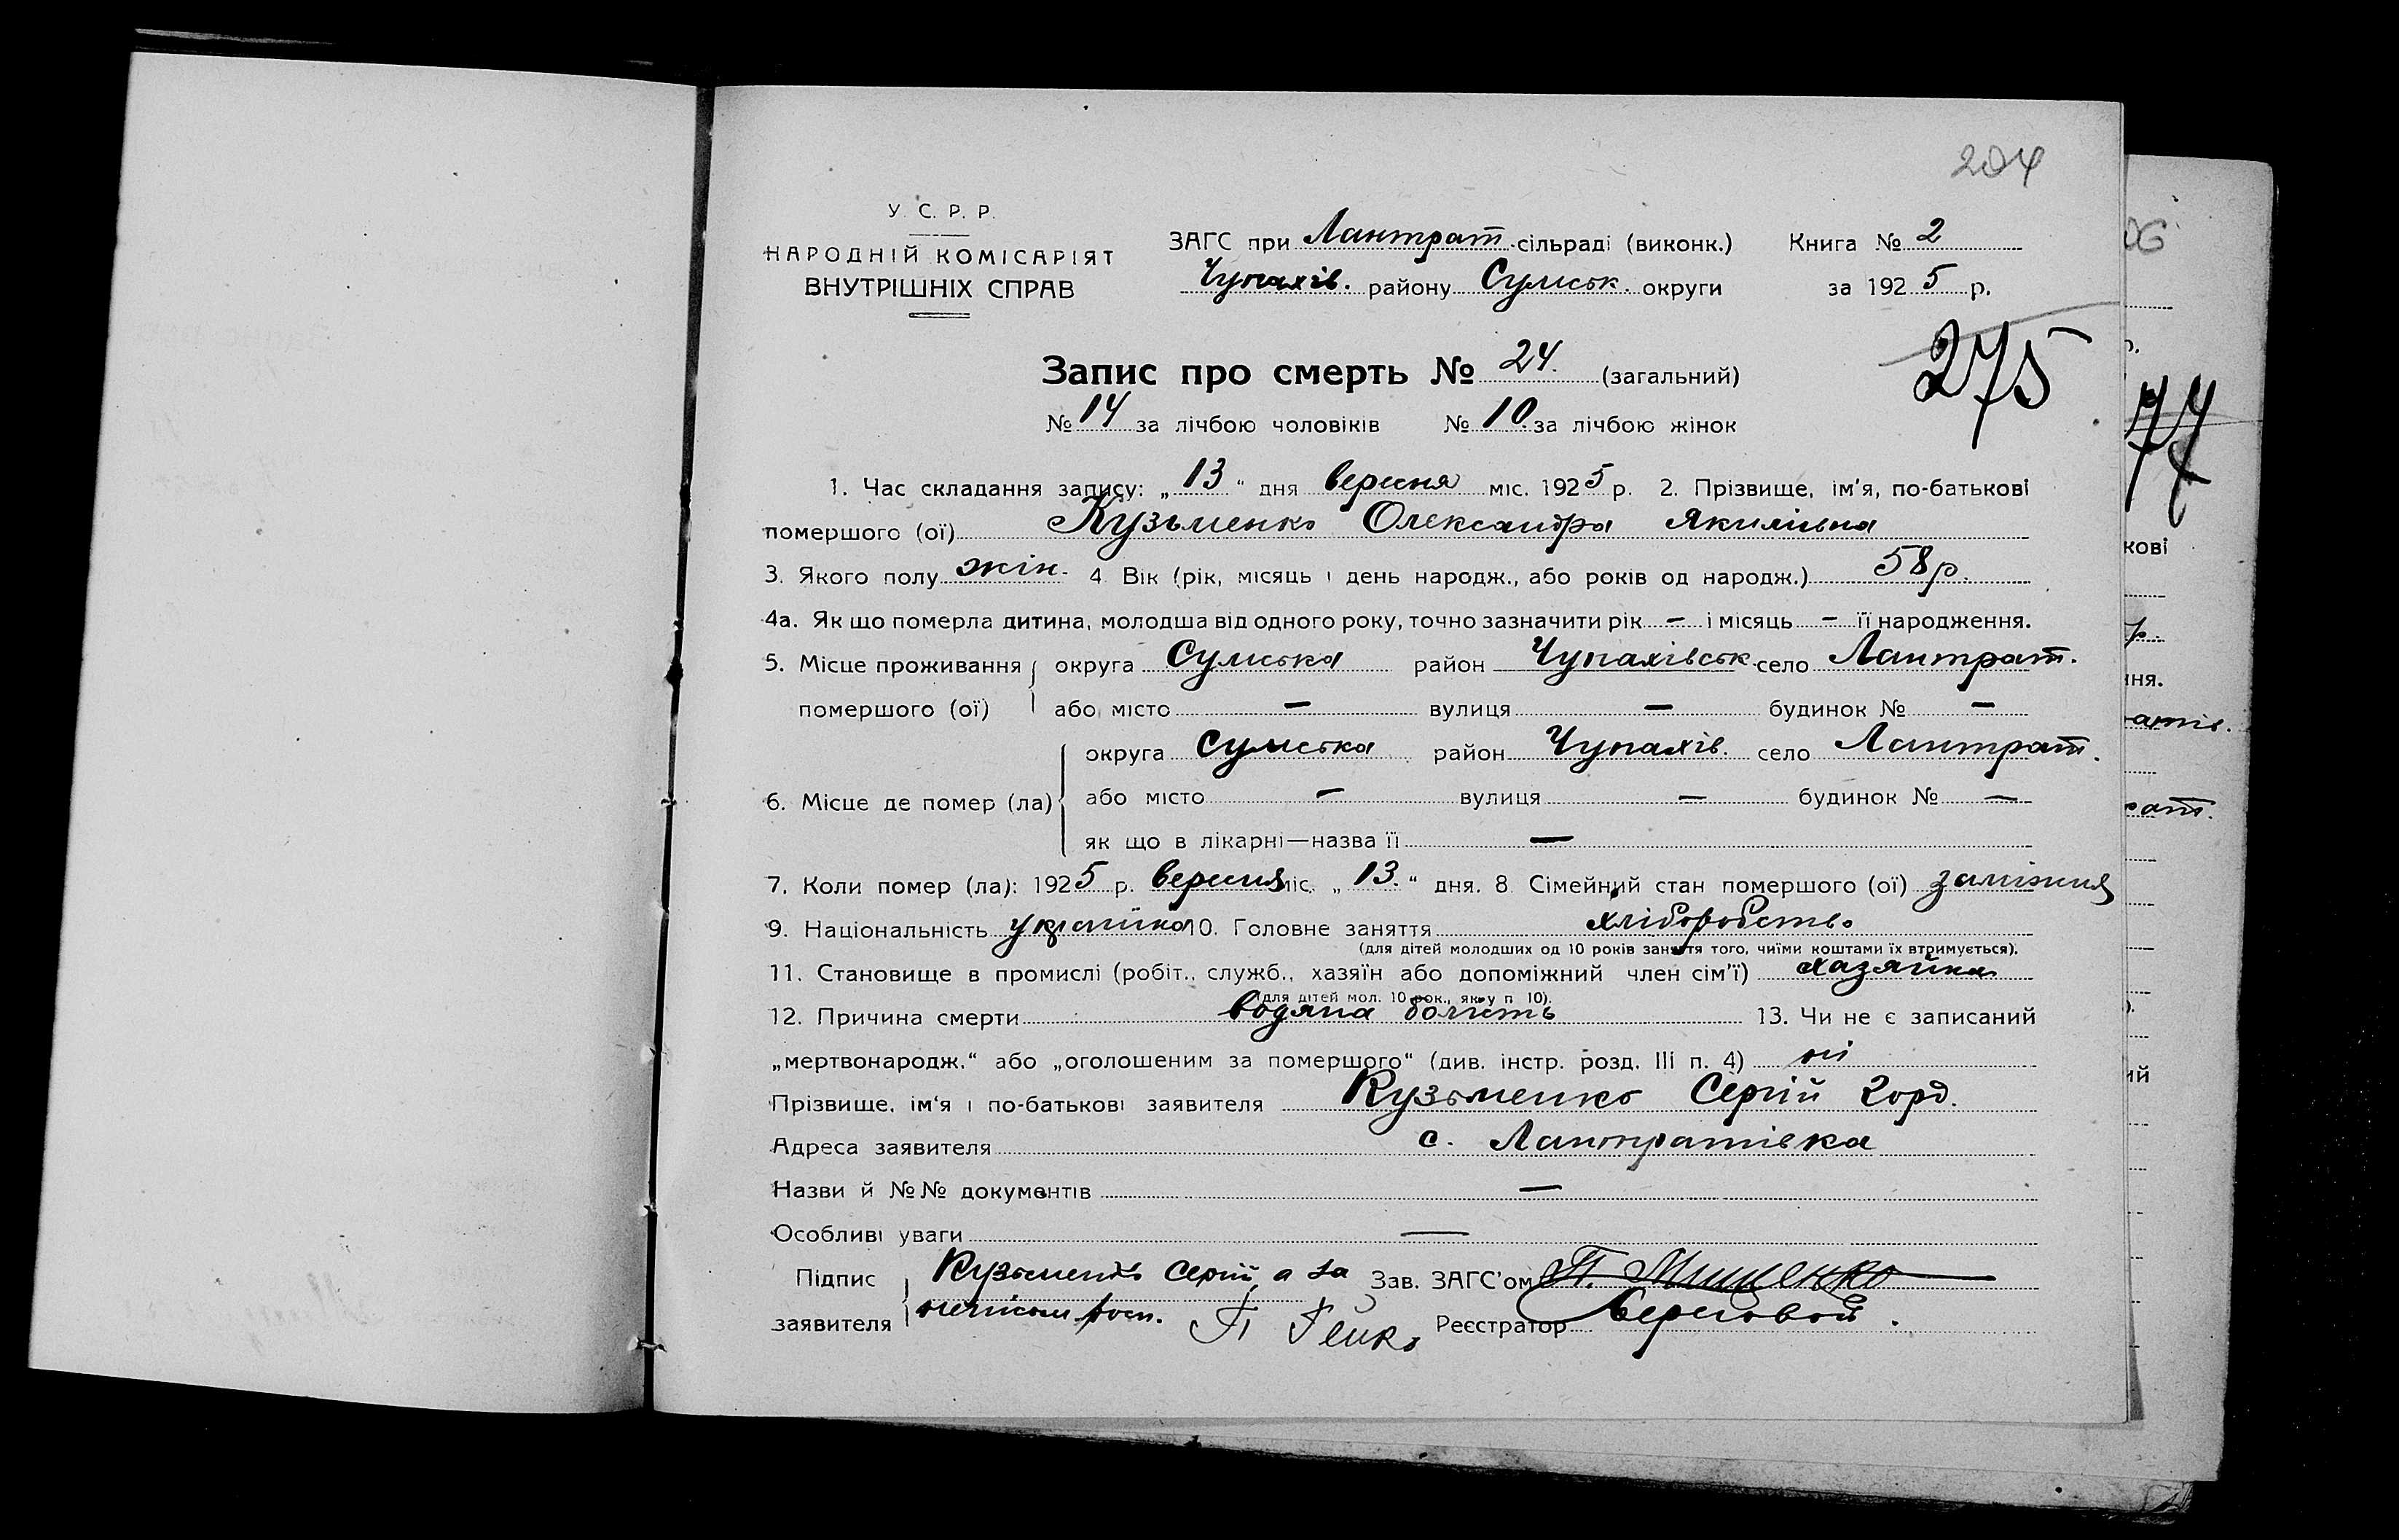 204
У. С. Р. Р.
НАРОДНІЙ КОМІСАРІЯТ
ВНУТРІШНІХ СПРАВ
ЗАГС при Лантрат. сільраді (виконк.) Книга № 2
Чупахів. району Сумськ. округи за 1925 р.
275
Запис про смерть № 24. (загальний)
№ 14 за лічбою чоловіків № 10. за лічбою жінок
1. Час складання запису: „13“ дня вересня міс. 1925 р. 2. Прізвище, ім'я, по-батькові
помершого (ої) Кузьменко Олександра Якимівна
3. Якого полу жін. 4. Вік (рік, місяць і день народж., або років од народж.) 58 р.
4а. Як що померла дитина, молодша від одного року, точно зазначити рік — і місяць — її народження.
5. Місце проживання округа Сумська район Чупахівськ. село Лантрат.
помершого (ої) або місто — вулиця — будинок № —
округа Сумська район Чупахів. село Лантрат.
6. Місце де помер (ла) або місто — вулиця — будинок № —
як що в лікарні—назва її —
7. Коли помер (ла): 1925 р. вересня міс. „13.“ дня. 8. Сімейний стан помершого (ої) заміжня
9. Національність україйка 10. Головне заняття хліборобство
(для дітей молодших од 10 років заняття того, чиїми коштами їх втримується).
11. Становище в промислі (робіт., служб., хазяїн або допоміжний член сім'ї) хазяйка
(для дітей мол. 10 рок., як у п 10).
12. Причина смерти водяна болість 13. Чи не є записаний
„мертвонародж.“ або „оголошеним за помершого“ (див. інстр. розд. III п. 4) ні
Прізвище, ім'я і по-батькові заявителя Кузьменко Сергій Горд.
Адреса заявителя с. Лантратівка
Назви й №№ документів —
Особливі уваги —
Підпис Кузьменко Сергій, а за Зав. ЗАГС'ом П. Мишенко
заявителя неписьм. росп. Реєстратор
06
кові
ння.
ий